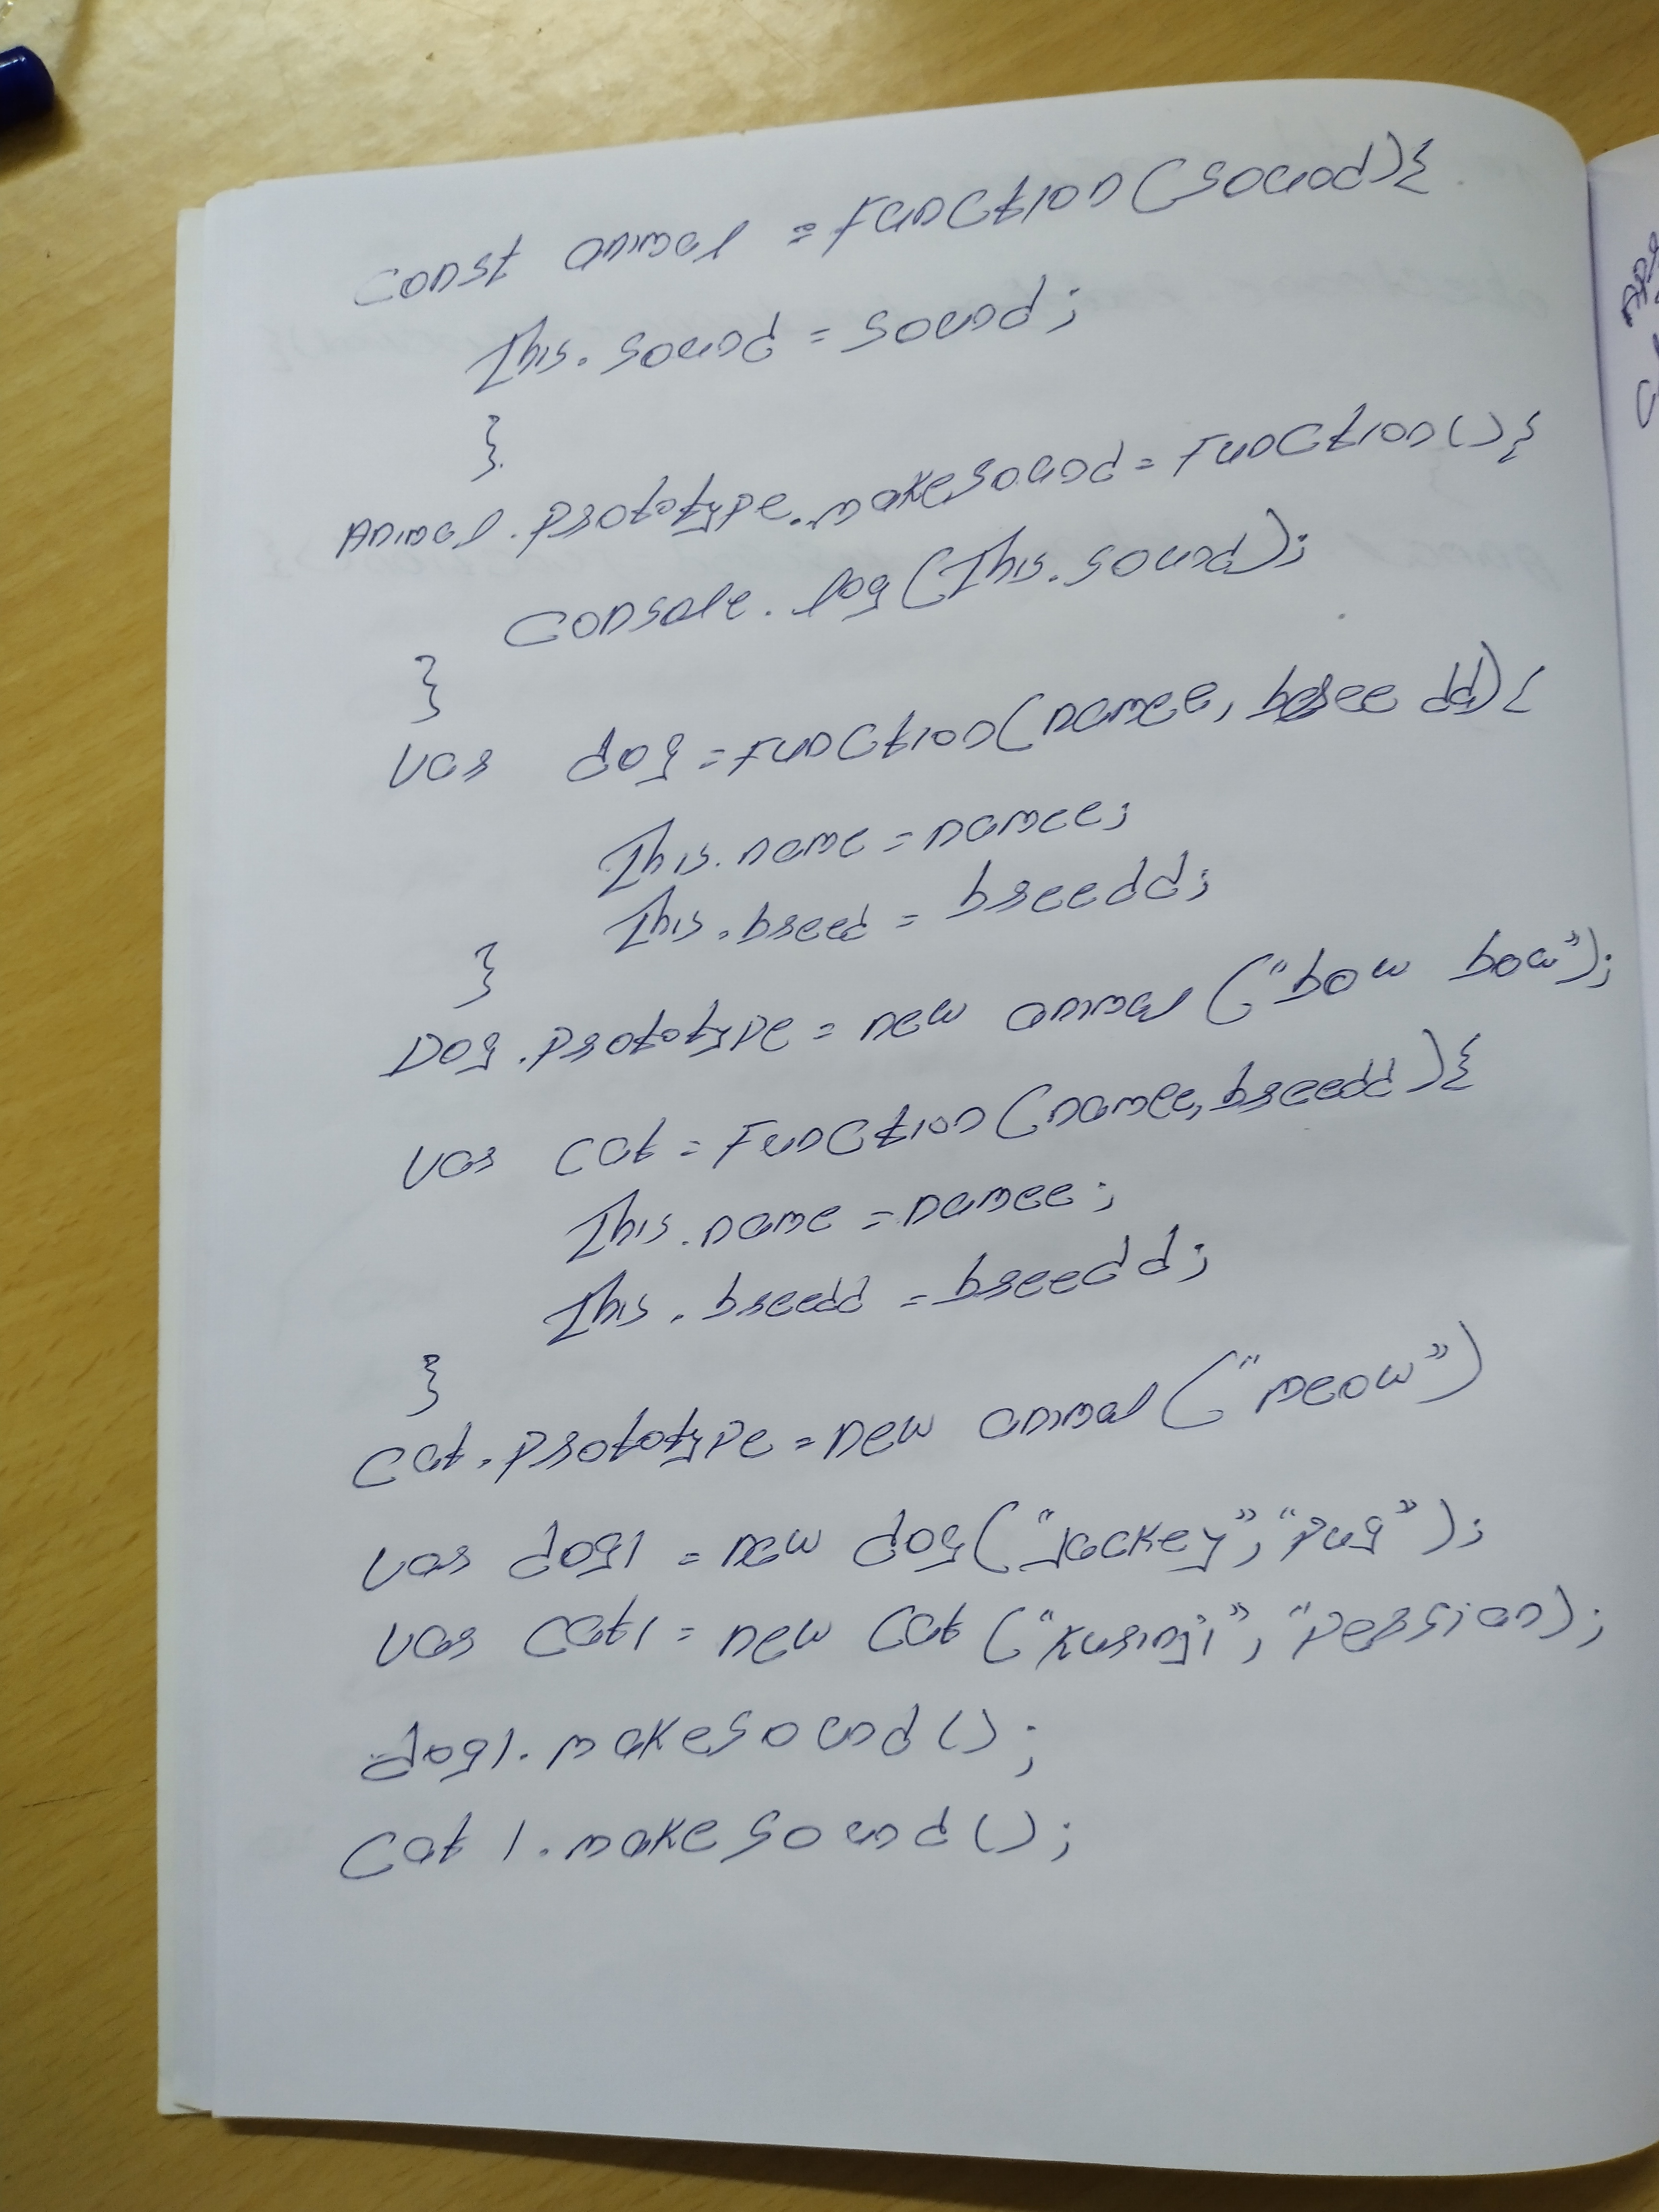 const animal = function(sound){
This.sound = sound;
}
Animal.prototype.makesound = function(){
console.log(This.sound);
}
var dog = function(namee, breedd){
This.name = namee;
This.breed = breedd;
}
Dog.prototype = new animal("bow bow");
var cat = Function(namee, breedd){
This.name = namee;
This.breedd = breedd;
}
cat.prototype = new animal("meow")
var dog1 = new dog("Jackey", "Pug");
var cat1 = new cat("Kurinji", "persian);
dog1.makesound();
cat1.makesound();